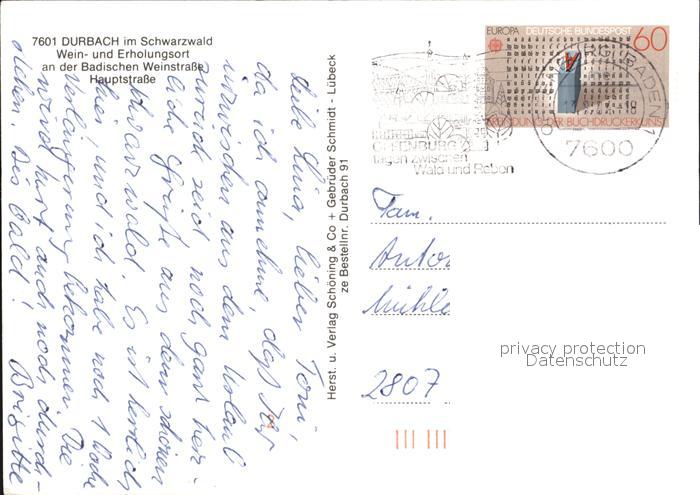 7601 DURBACH im Schwarzwald
Wein- und Erholungsort
an der Badischen Weinstraße
Hauptstraße
Liebe Lina, lieber Toni,
da ich annehme, daß Ihr
inzwischen aus dem Urlaub
zurück seid noch ganz herz-
liche Grüße aus dem schönen
Schwarzwald. Es ist herrlich
hier, und ich habe noch 1 Woche
Verlängerung bekommen. Die
wird kurt auch noch durch-
stehen. Bis bald! Brigitte
Herst. u. Verlag Schöning & Co + Gebrüder Schmidt - Lübeck
ze Bestellnr. Durbach 91
EUROPA DEUTSCHE BUNDESPOST 60
ERFINDUNG DER BUCHDRUCKERKUNST
OFFENBURG
tagen zwischen
Wald und Reben
7600
Fam.
Anton
Mühle
2807
privacy protection
Datenschutz